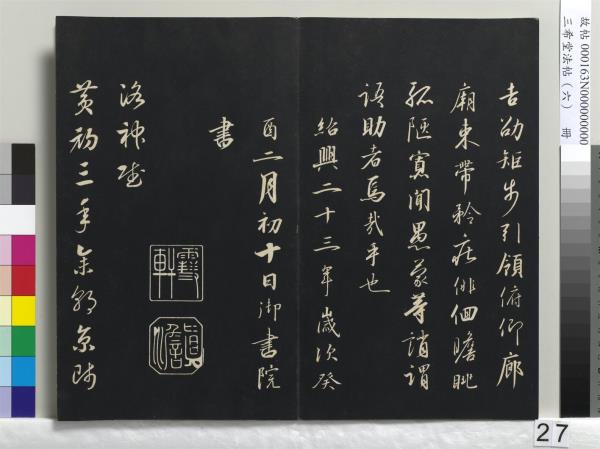 古劭矩步引領俯仰廊
廟束帶矜莊俳佪瞻眺
孤陋寡聞愚蒙等誚謂
語助者焉哉乎也
紹興二十三年歲次癸
酉二月初十日御書院
書
洛神賦
黃初三年余朝京師
故帖 000163N000000000
三希堂法帖（六） 冊
27